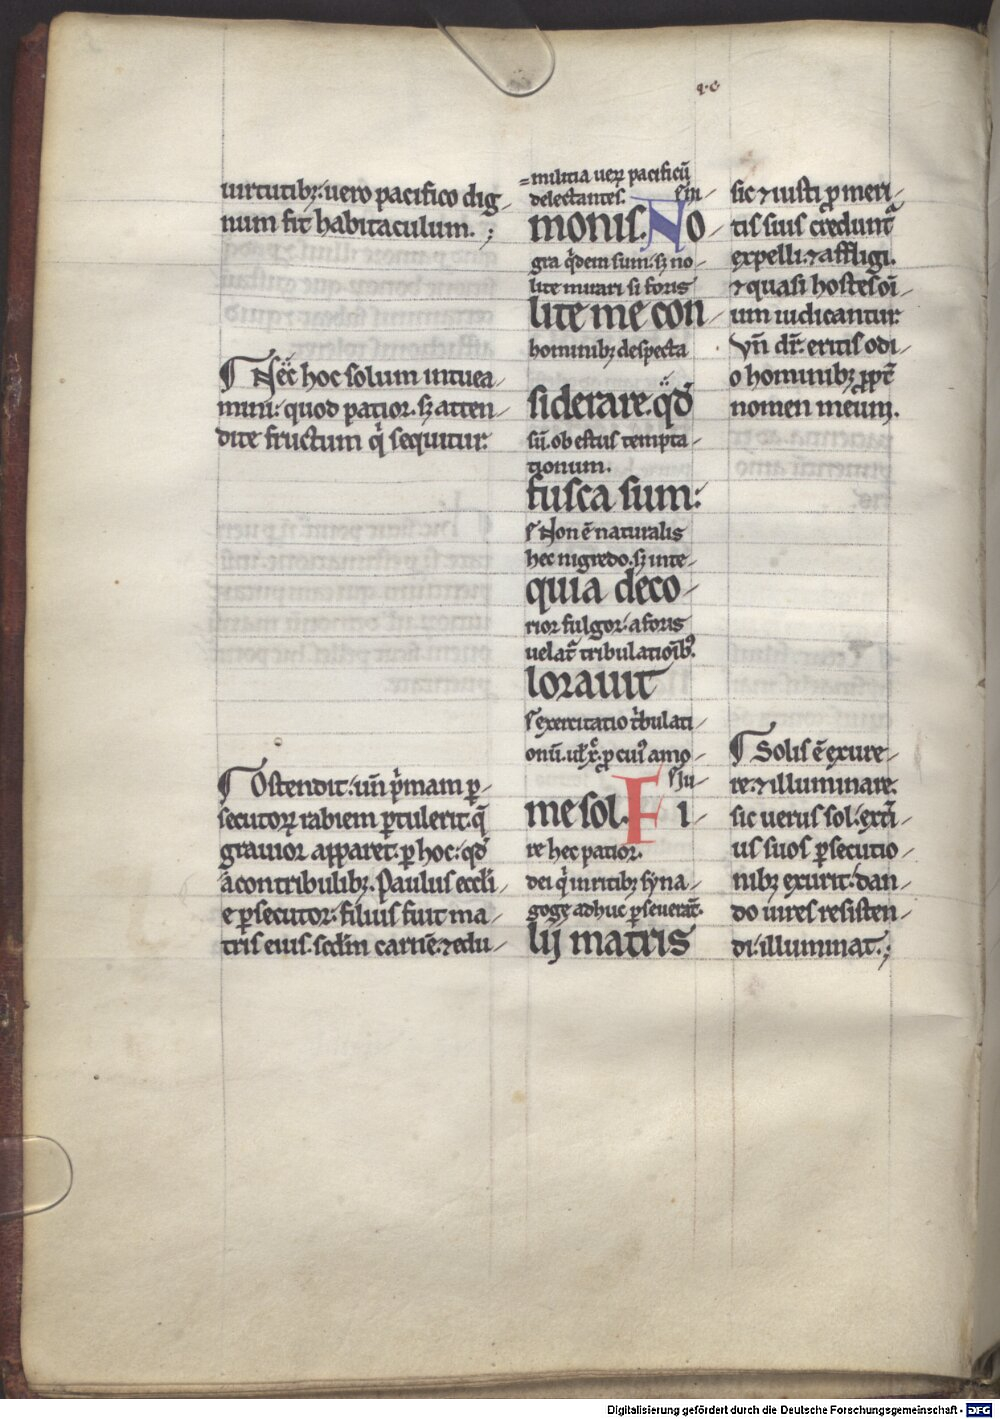 uirtutibꝫ: uero pacifico dig-
num fit habitaculum.;
¶ Nec̄ hoc solum intuea-
mini: quod patior. sꝫ atten-
dite fructum q̇ sequitur.
¶ Ostendit: un̄ ṗmam ꝑ-
secutoꝝ rabiem ꝑtulerit. q̄
grauior apparet. ꝑ hoc: qd̄
a contribulibꝫ. Paulus eccli-
e ꝑsecutor: filius fuit ma-
tris eius. scd̄m carnē. ⁊ edu-
=militia ueꝝ pacificū
delectantes.
monis. No-
gra q̇dem sum: sꝫ no-
lite mirari si foris
lite me con-
hominibꝫ despecta
siderare. qd̄
sū. ob estus tempta-
tionum.
fusca sum:
Non ē naturalis
hec nigredo. sꝫ inte-
quia deco-
rior fulgor: a foris
uelat̄ tribulationibꝰ.
lorauit
exercitatio tribulati-
onū. ꝓ cuiꝰ amo-
me sol. Fi-
re hec patior.
dei q̇ in ritibꝫ syna-
goge adhuc ꝑseuerat̄.
lij matris
sic ⁊ iusti ꝓ meri-
tis suis credunt̄
expelli. ⁊ affligi.
⁊ quasi hostes oī-
um iudicantur.
Vn̄ dr̄. eritis odi-
o hominibꝫ ꝓpt̄
nomen meum.
¶ Solis ē exure-
re. ⁊ illuminare.
sic uerus sol: ext̄i-
us suos ꝑsecutio-
nibꝫ exurit: dan-
do uires resisten-
di: illuminat.;